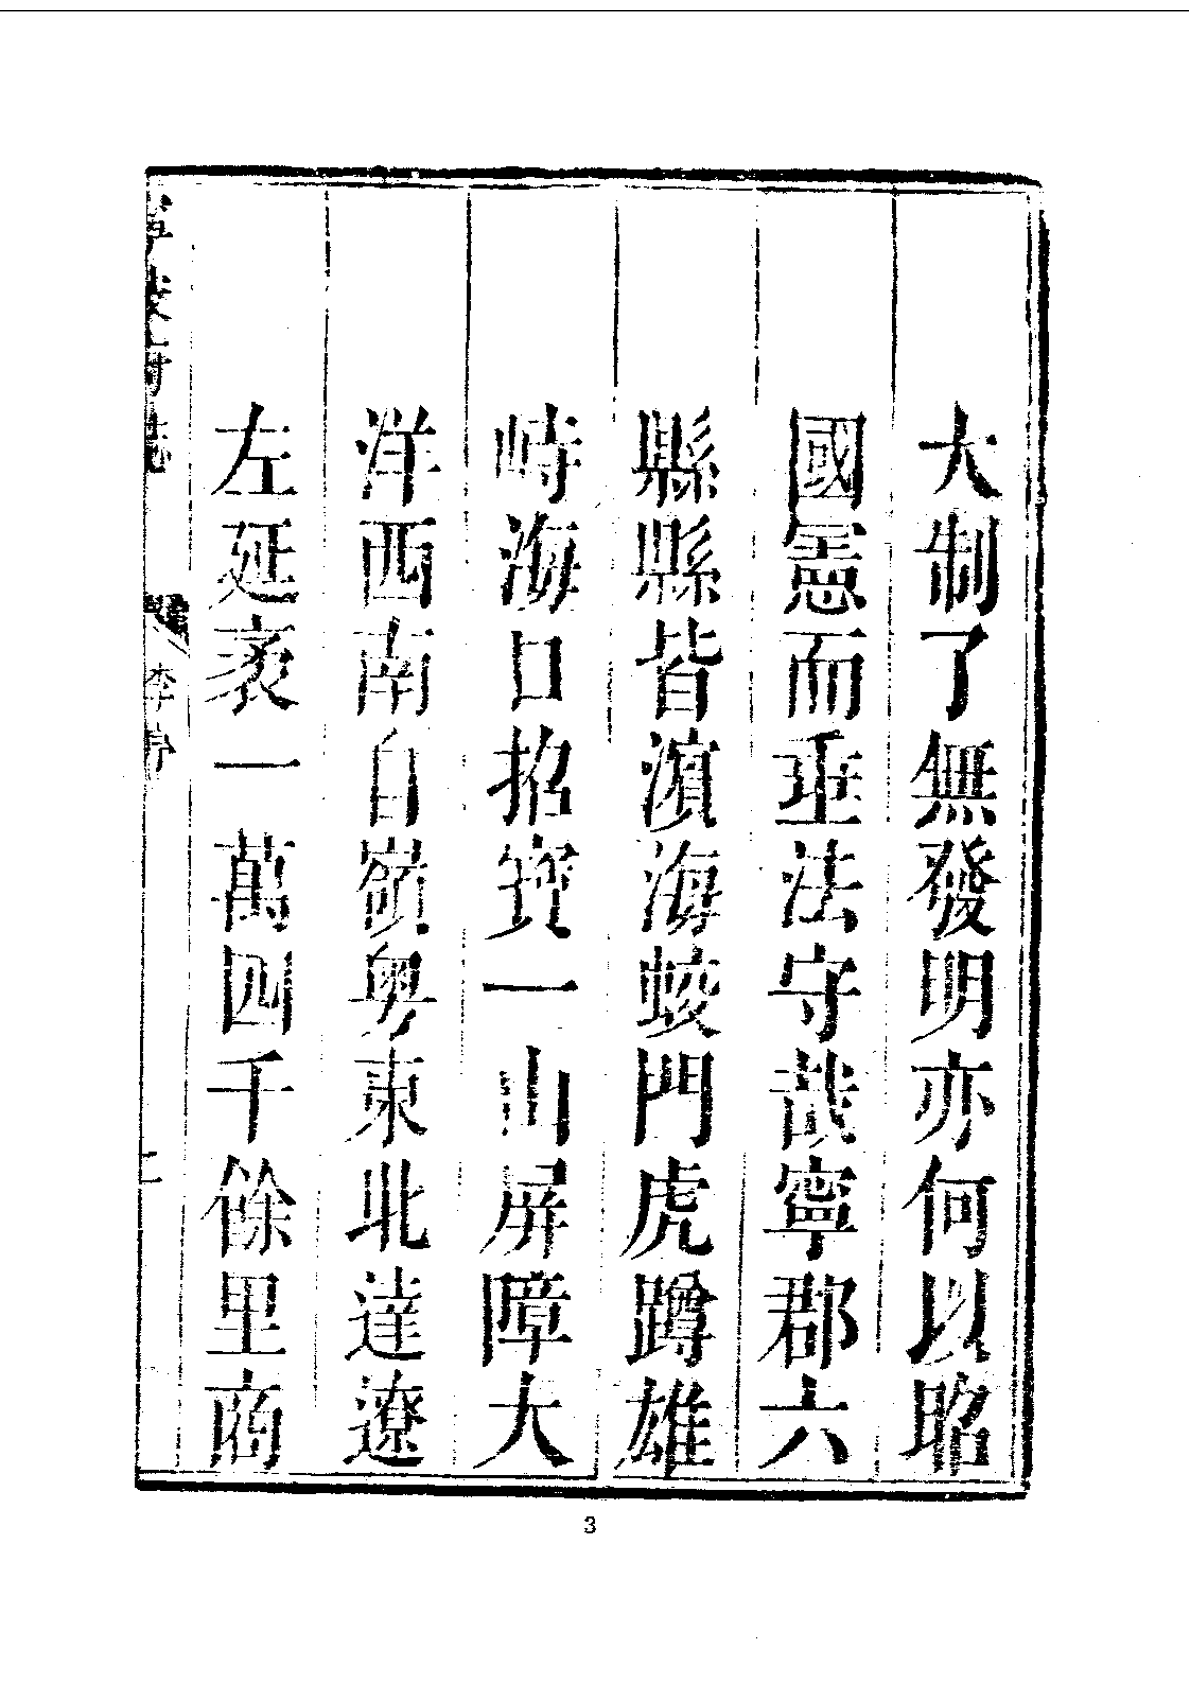 大制了無發明亦何以昭
國憲而垂法守哉寧郡六
縣縣皆濱海蛟門虎蹲雄
峙海口招寶一山屏障大
洋西南自嶺粵東北達遼
左延袤一萬四千餘里商
李序
二
3